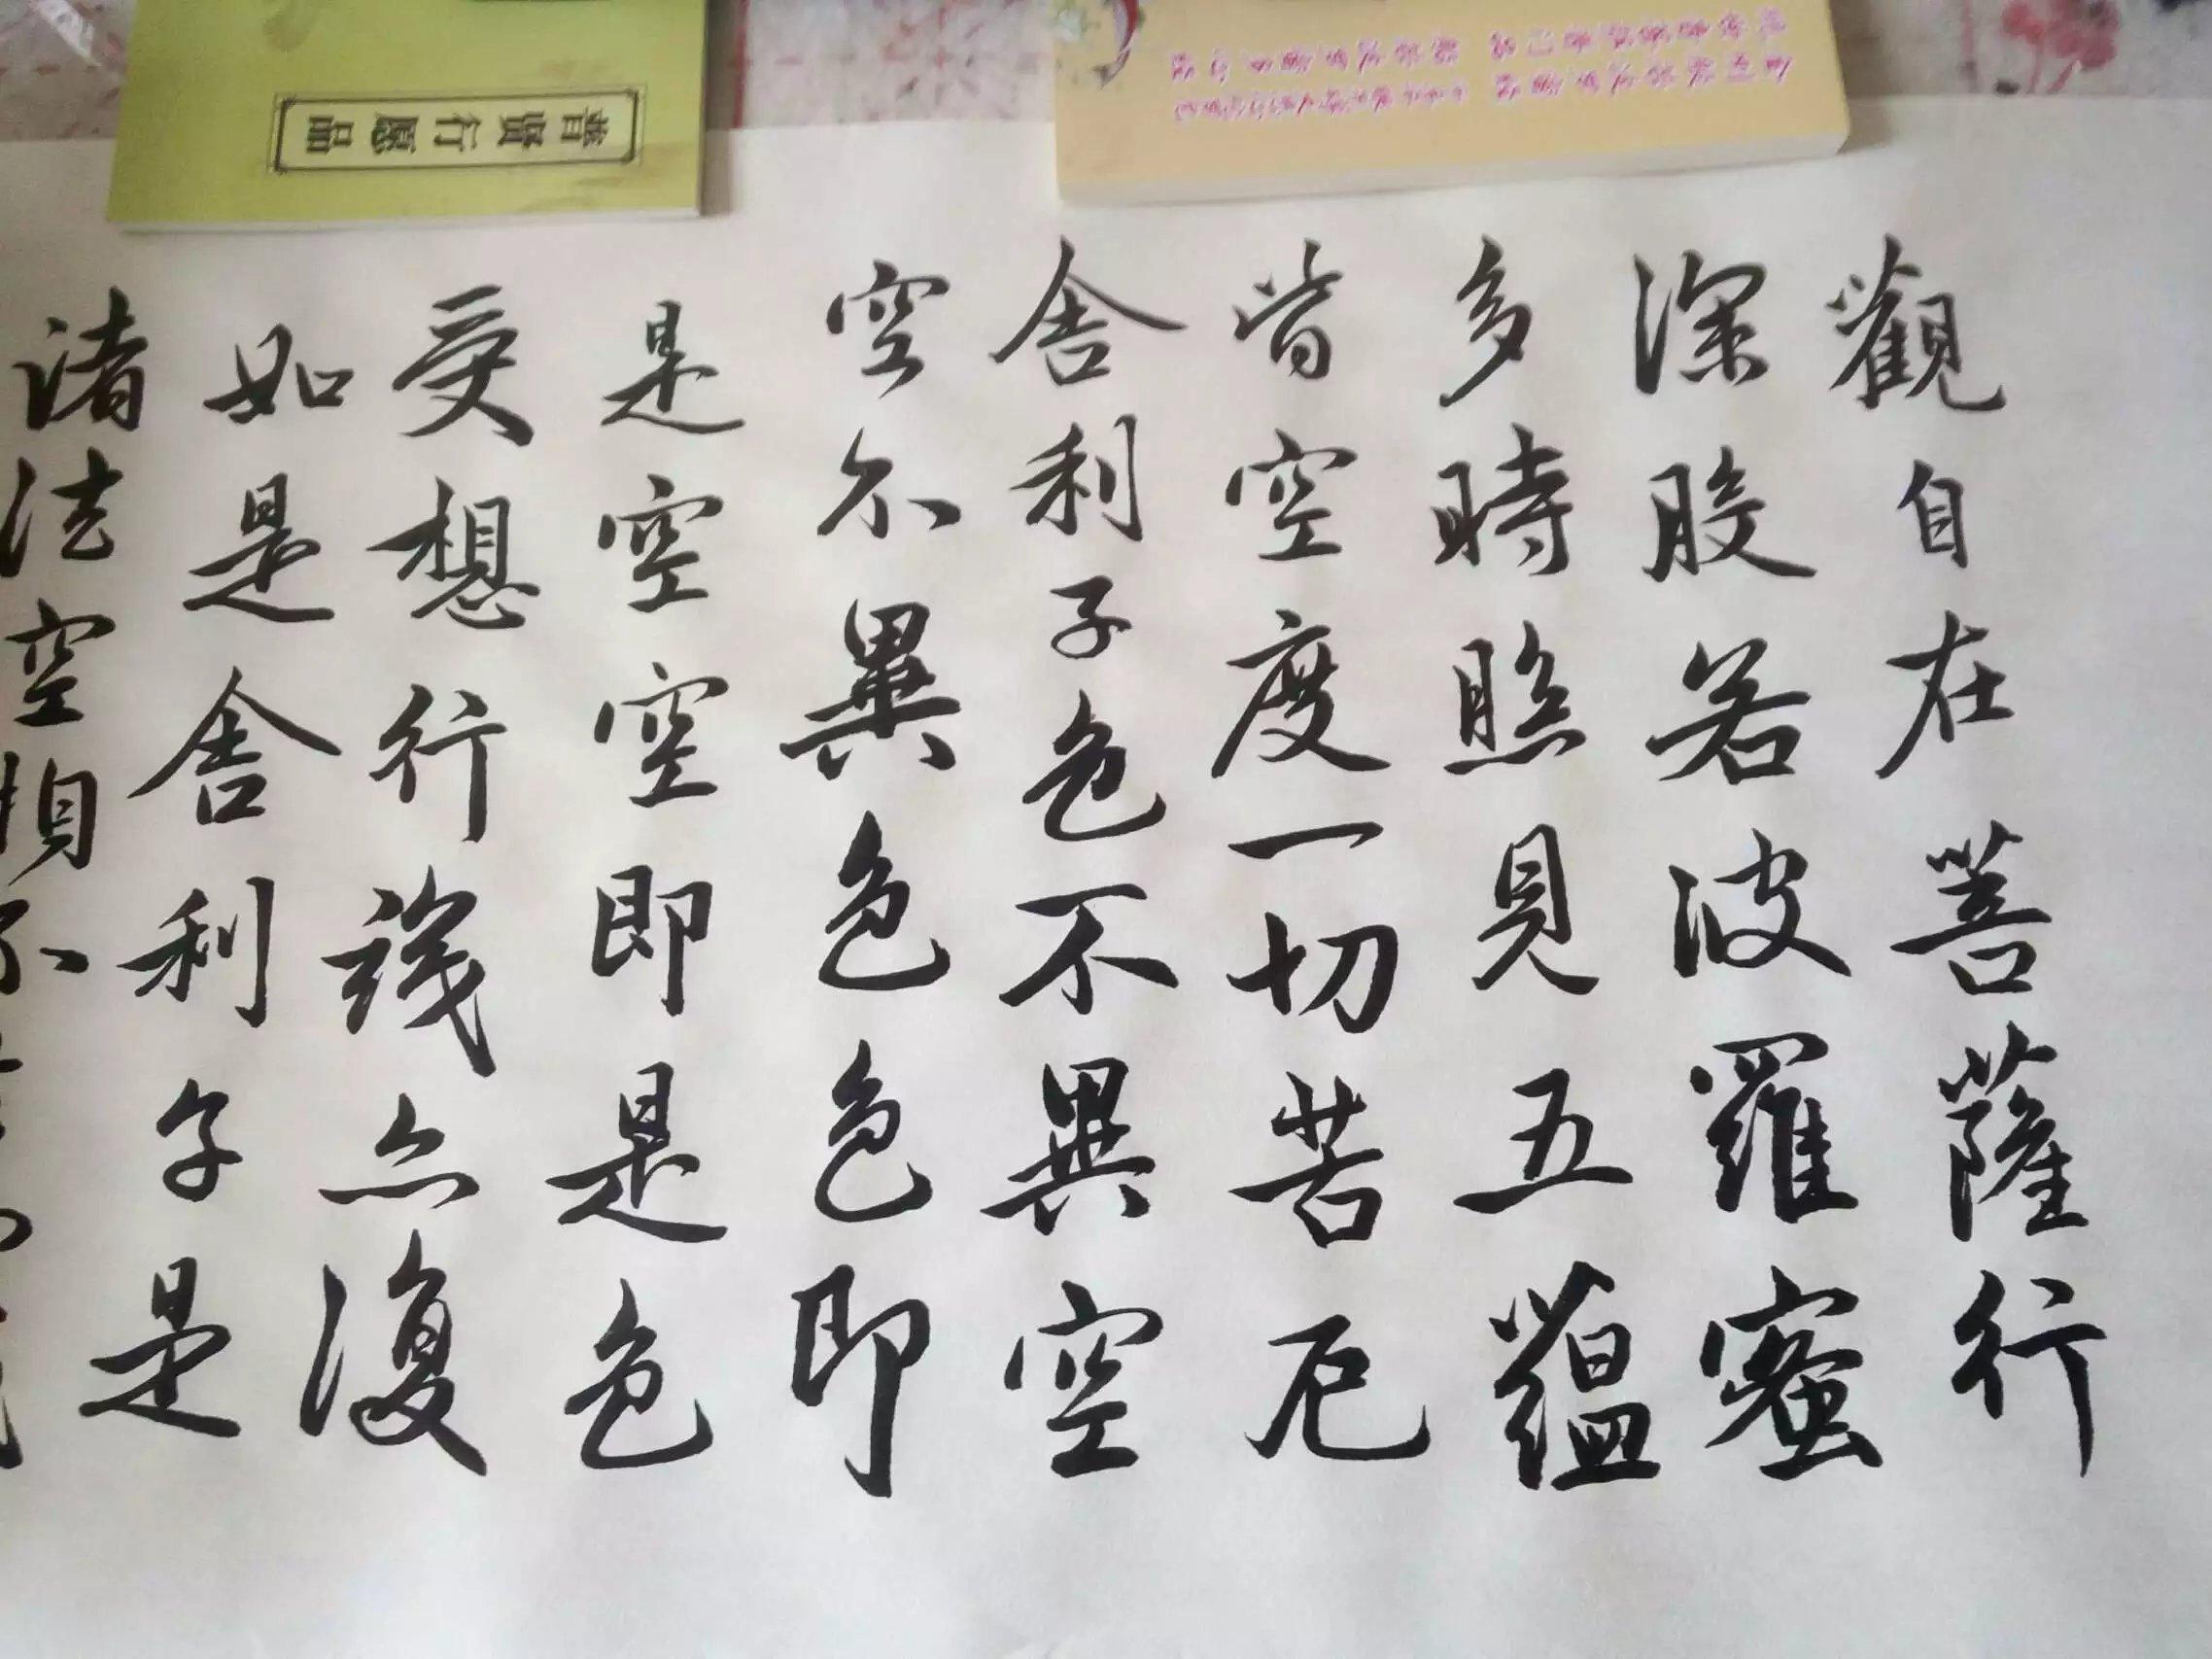 觀自在菩薩行
深般若波羅蜜
多時照見五蘊
皆空度一切苦厄
舍利子色不異空
空不異色色即
是空空即是色
受想行識亦復
如是舍利子是
诸法空相不
普贤行愿品